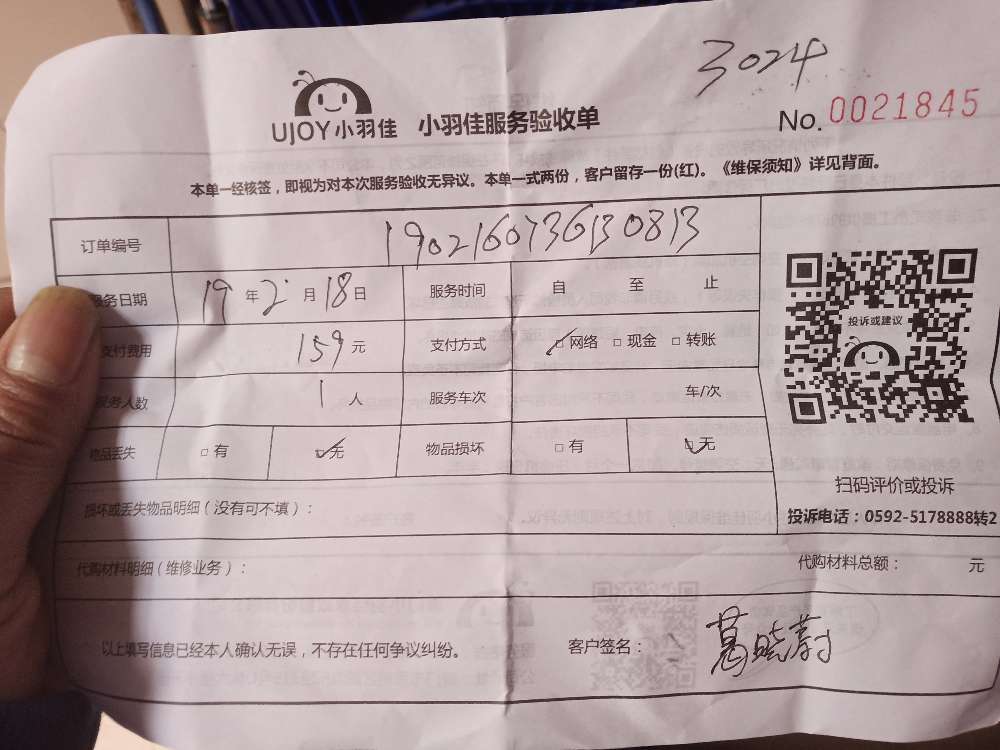 3024
UJOY小羽佳 小羽佳服务验收单
No. 0021845
本单一经核签，即视为对本次服务验收无异议。本单一式两份，客户留存一份(红)。《维保须知》详见背面。
订单编号 1902160736130813
服务日期 19年2月18日 服务时间 自 至 止
支付费用 159元 支付方式 □网络 □现金 □转账
服务人数 1人 服务车次 车/次
物品丢失 □有 □无 物品损坏 □有 □无
损坏或丢失物品明细（没有可不填）：
投诉或建议
扫码评价或投诉
投诉电话：0592-5178888转2
代购材料明细（维修业务）： 代购材料总额： 元
以上填写信息已经本人确认无误，不存在任何争议纠纷。 客户签名： 葛晓蔚